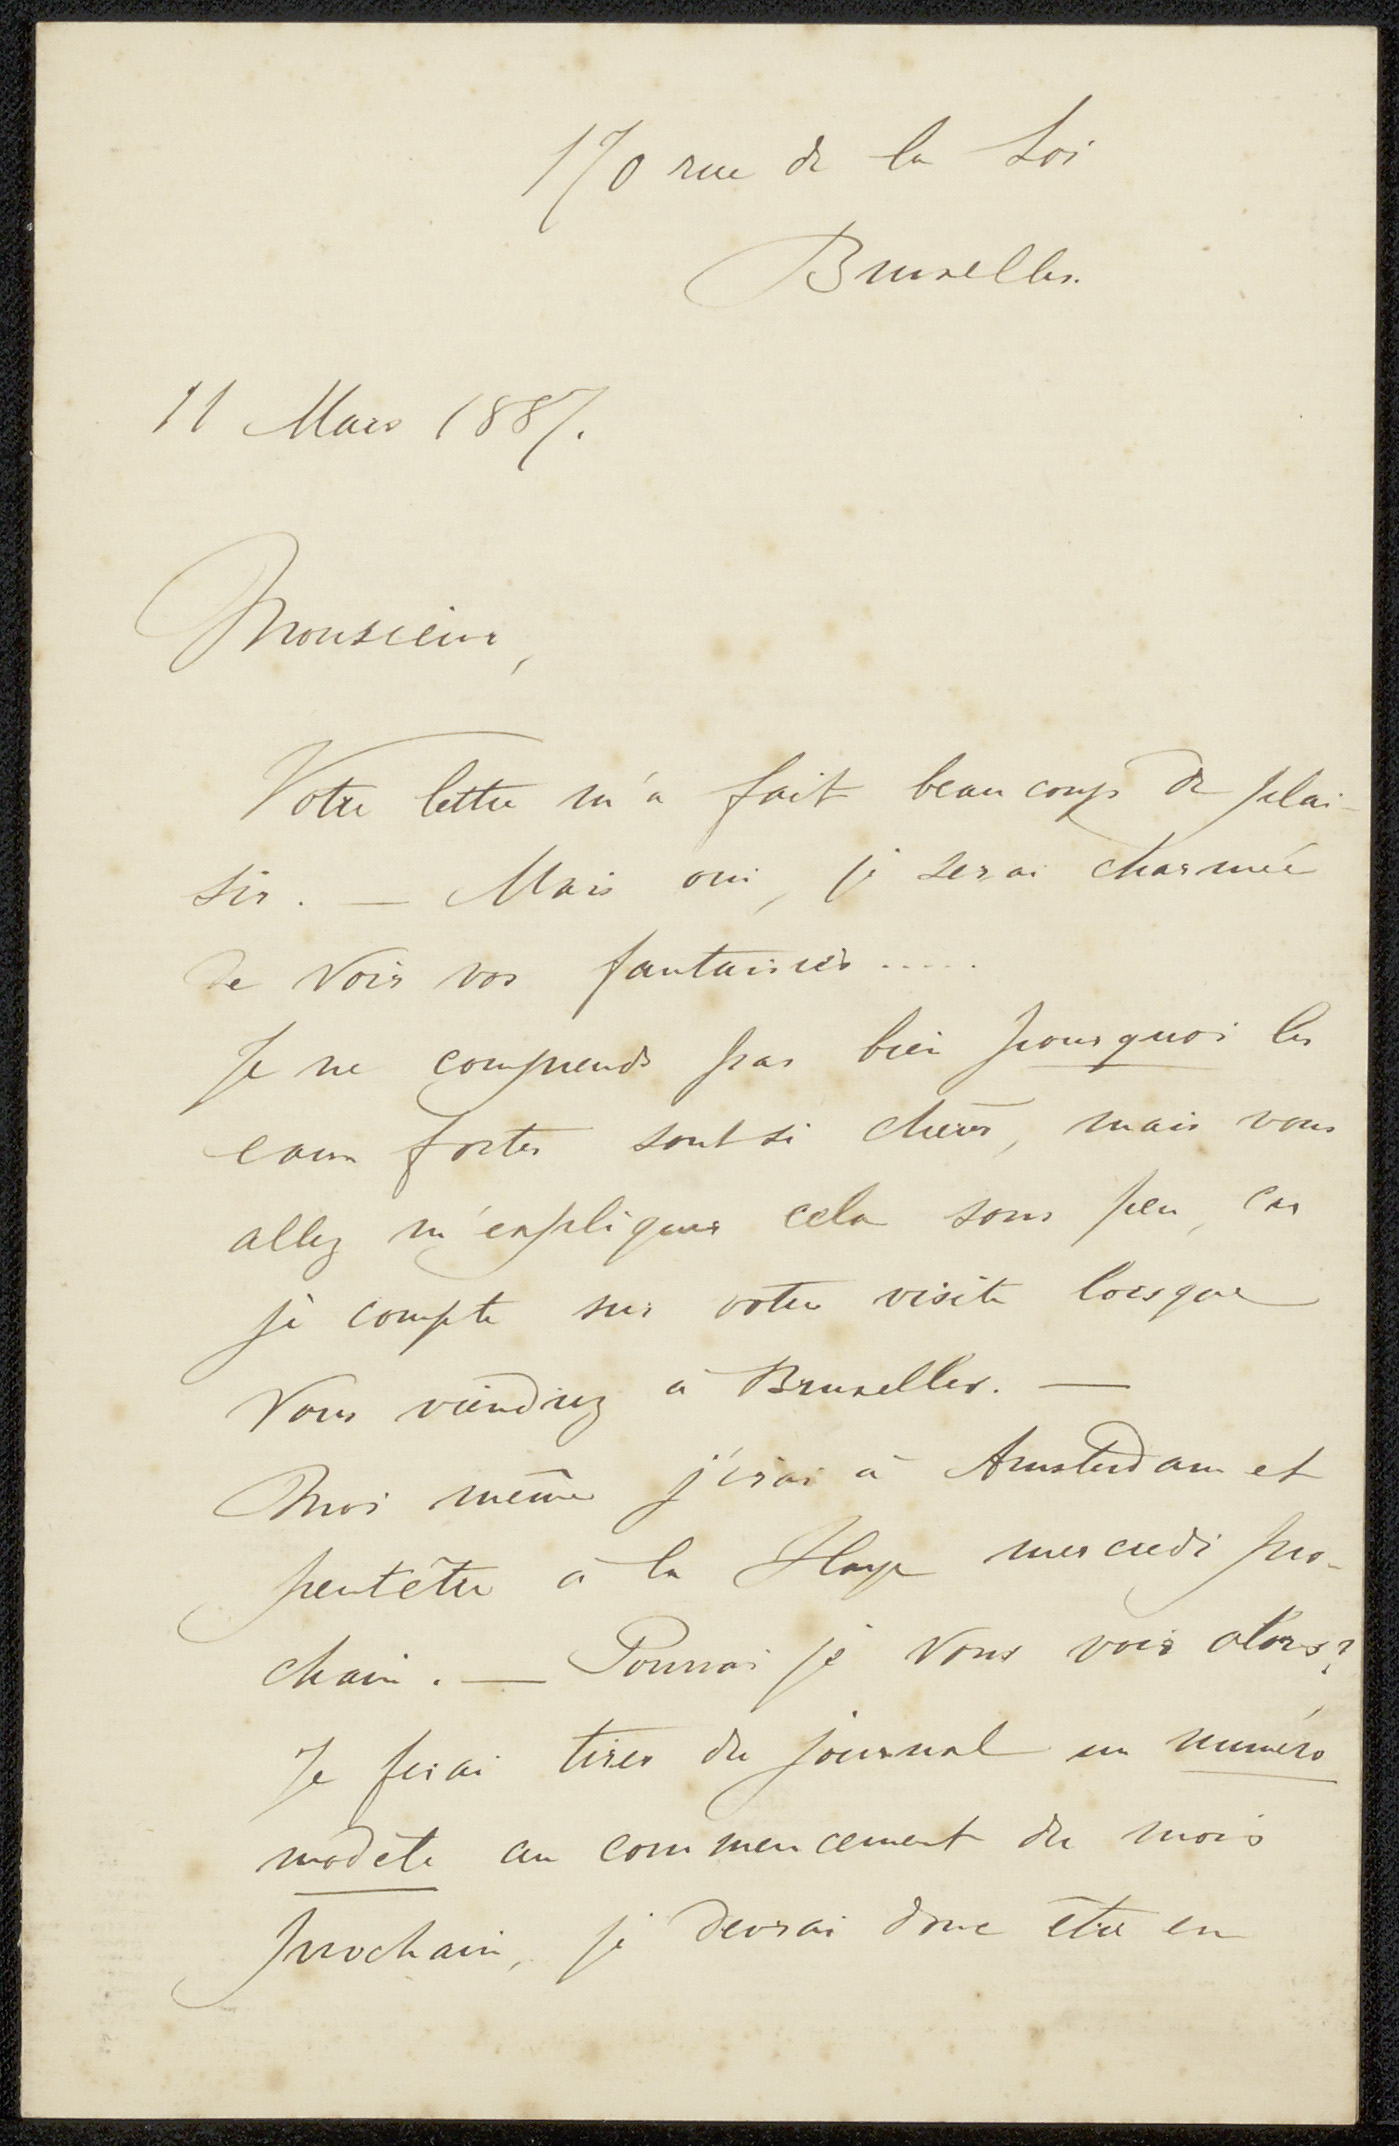 170 rue de la Loi
Bruxelles.
11 Mars 1887.
Monsieur,
Votre lettre m'a fait beaucoup de plai-
sir. — Mais oui, je serai charmée
de voir vos fantaisies.....
Je ne comprends pas bien pourquoi les
eaux fortes sont si chères, mais vous
allez m'expliquer cela sous peu, car
je compte sur votre visite lorsque
vous viendrez à Bruxelles. —
Moi même j'irai à Amsterdam et
peutêtre à la Haye mercredi pro-
chain. — Pourrai je vous voir alors?
Je ferai tirer du journal un numéro
modèle au commencement du mois
prochain, je devrai donc être en